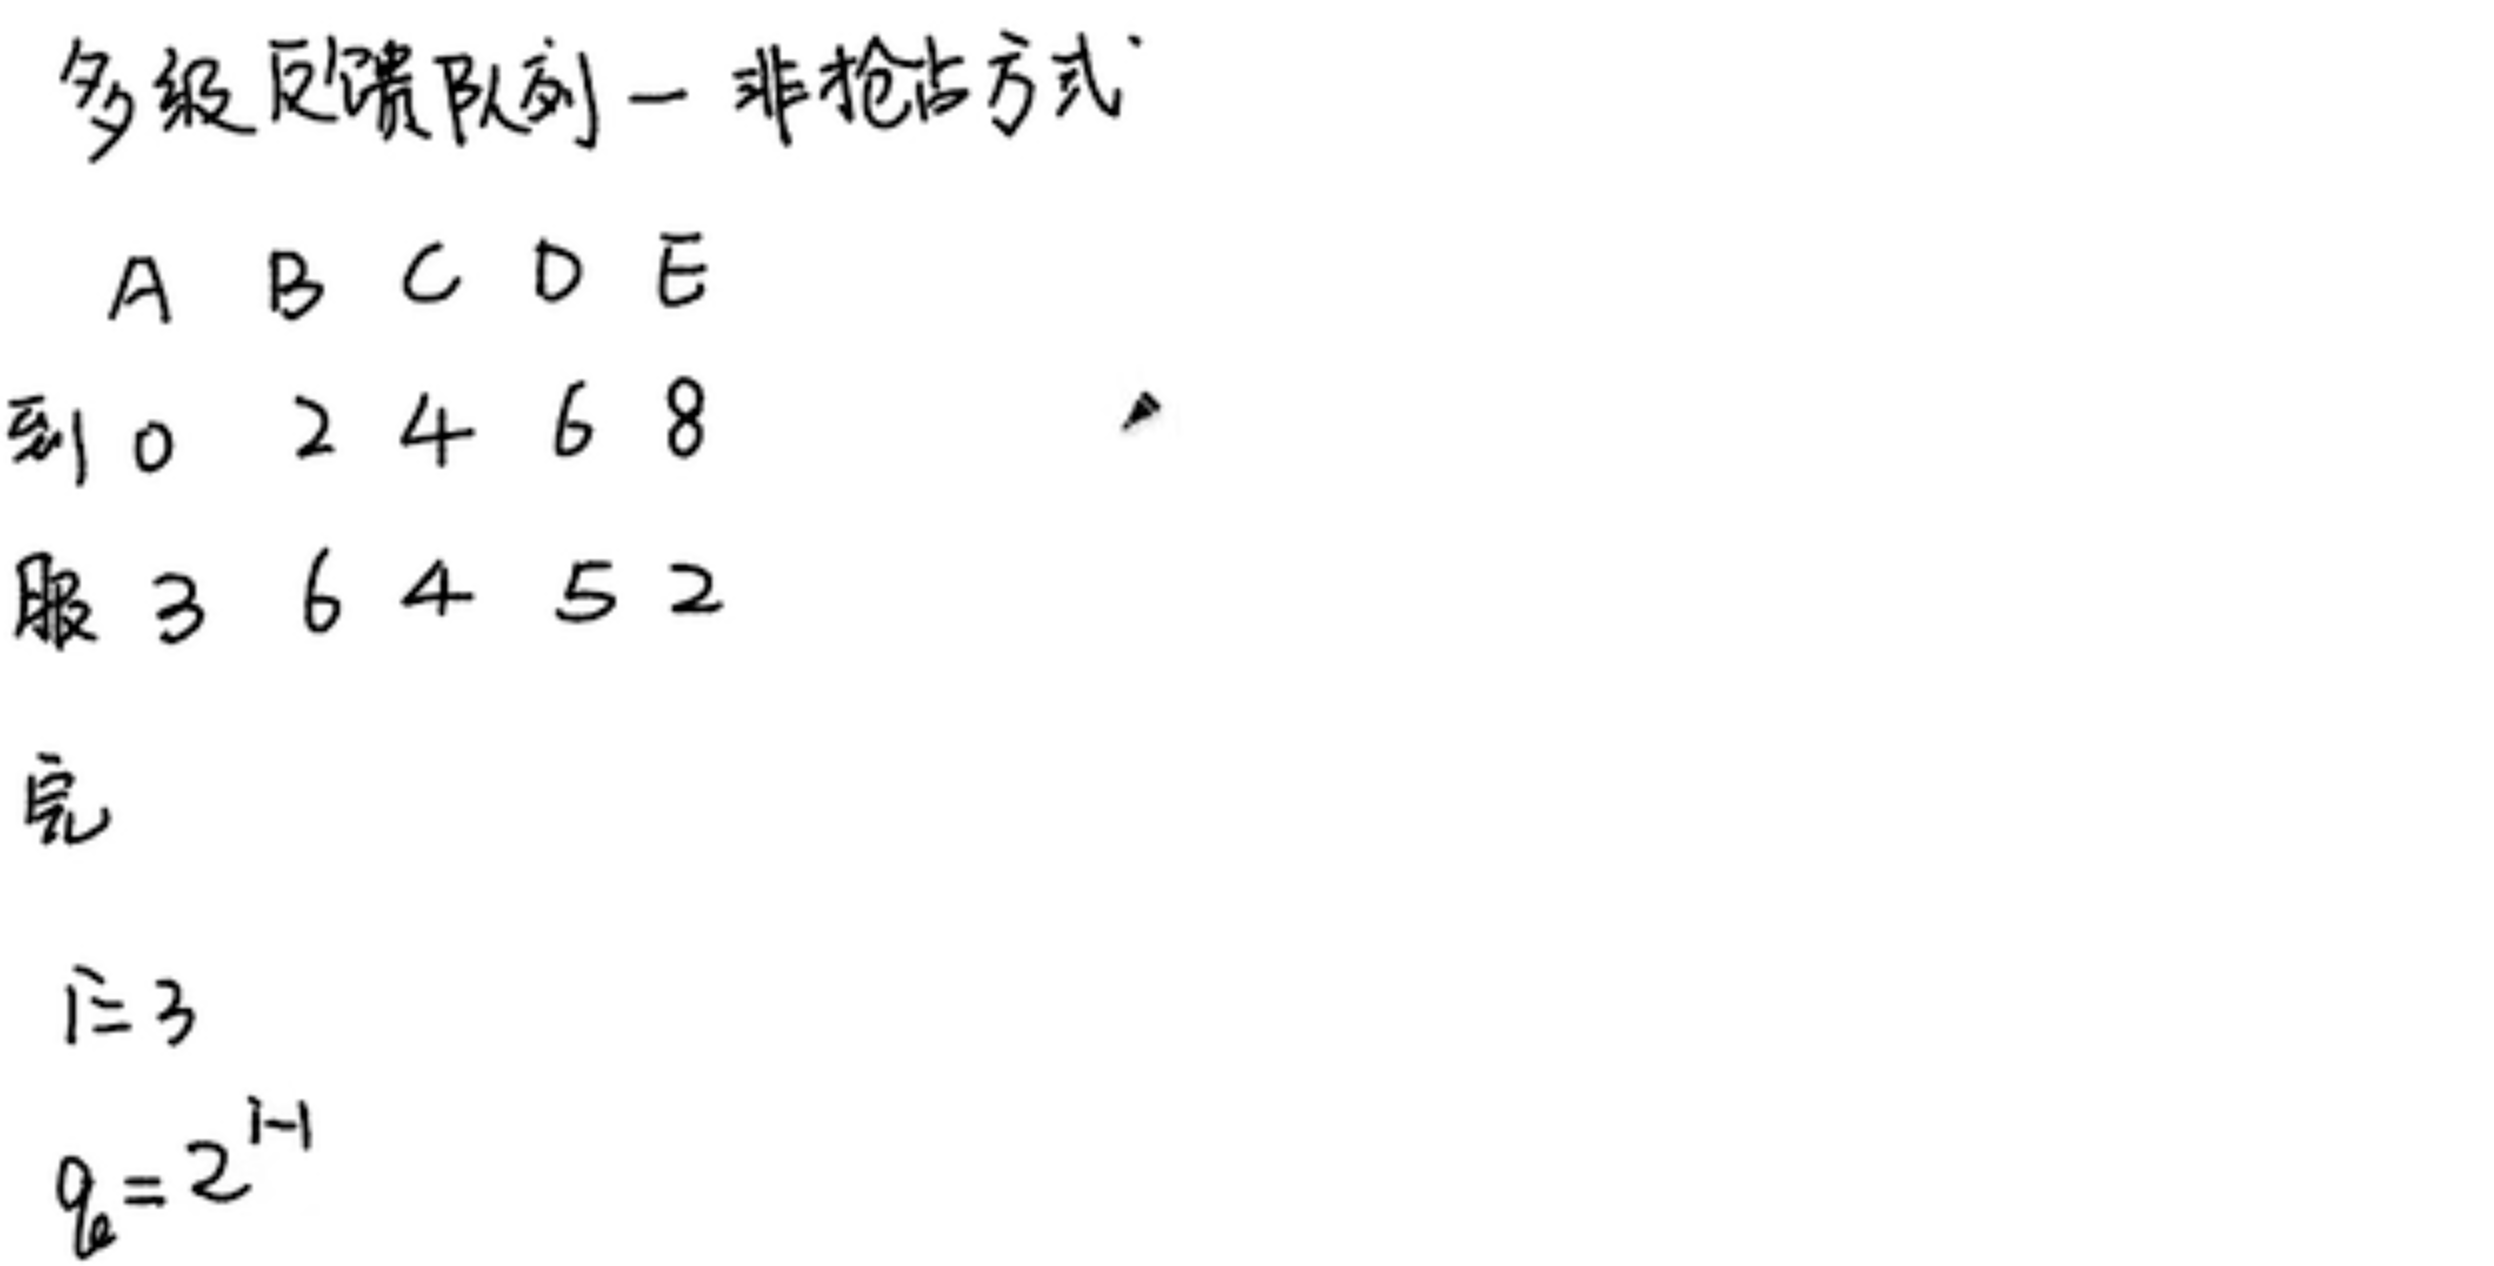 多级反馈队列 — 非抢占方式
A B C D E
到 0 2 4 6 8
服 3 6 4 5 2
完
i=3
q=2^{i-1}